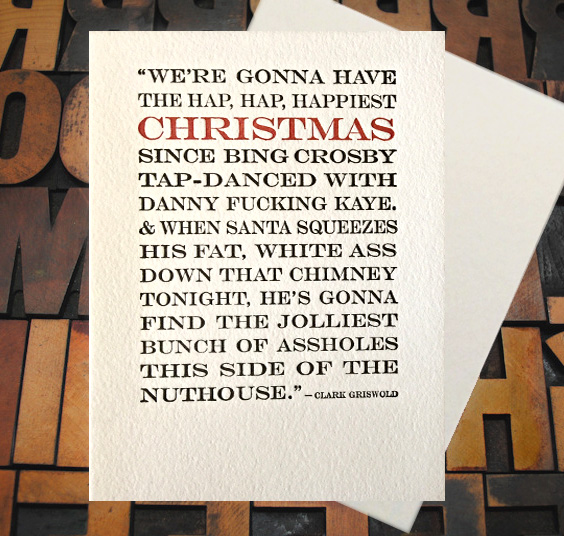 “WE’RE GONNA HAVE
THE HAP, HAP, HAPPIEST
CHRISTMAS
SINCE BING CROSBY
TAP-DANCED WITH
DANNY FUCKING KAYE.
& WHEN SANTA SQUEEZES
HIS FAT, WHITE ASS
DOWN THAT CHIMNEY
TONIGHT, HE’S GONNA
FIND THE JOLLIEST
BUNCH OF ASSHOLES
THIS SIDE OF THE
NUTHOUSE.” – CLARK GRISWOLD